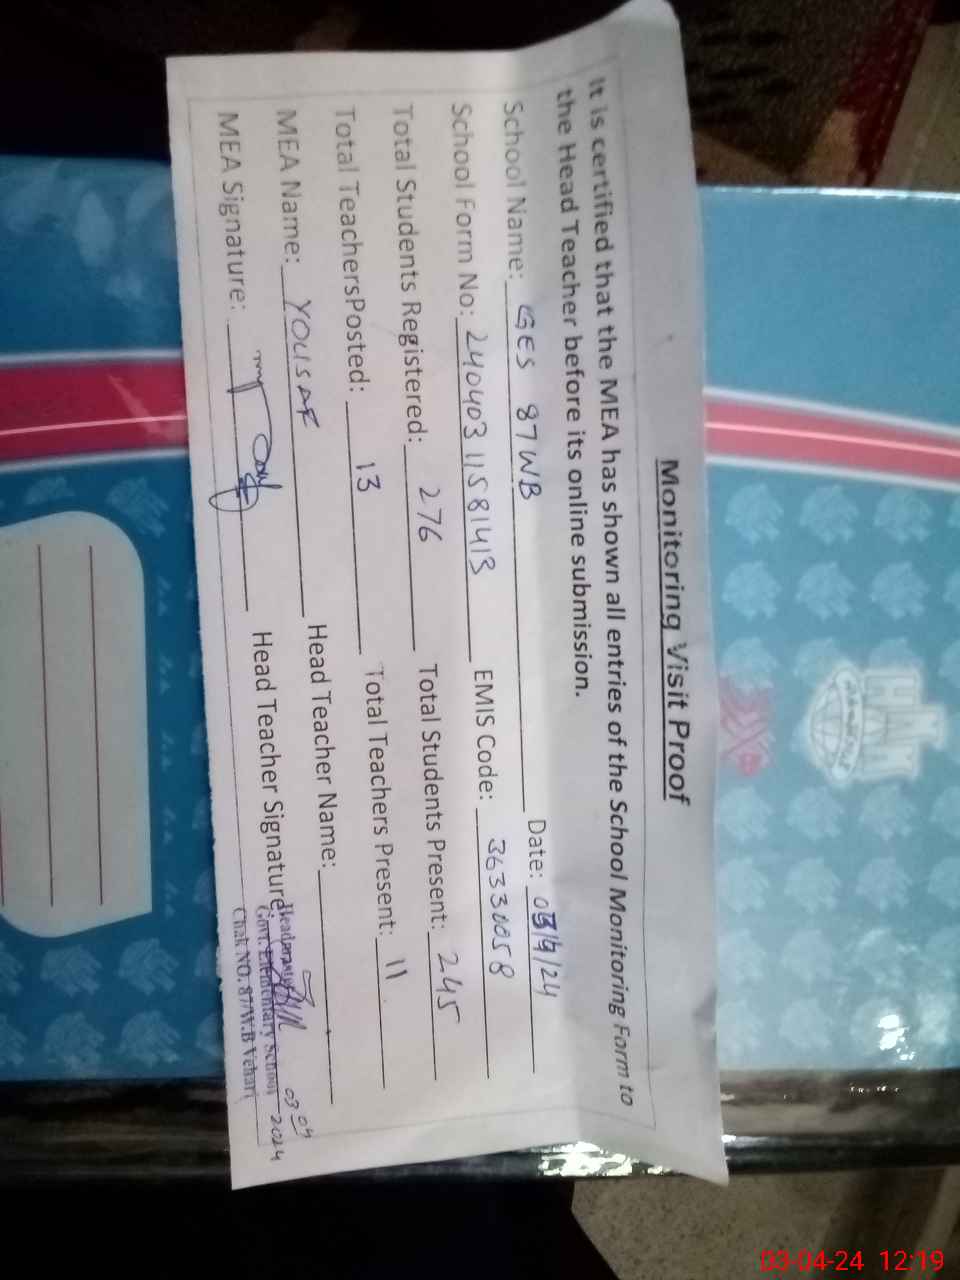 Monitoring Visit Proof
It is certified that the MEA has shown all entries of the School Monitoring Form to
the Head Teacher before its online submission.
School Name: GES 87WB Date: 03/4/24
School Form No: 24040311581413 EMIS Code: 36330058
Total Students Registered: 276 Total Students Present: 245
Total TeachersPosted: 13 Total Teachers Present: 11
MEA Name: YOUSAF Head Teacher Name:
MEA Signature: Head Teacher Signature:
03 04
2024
Headmaster
Govt. Elementary School
Chak NO. 87/W.B Vehari
03-04-24 12:19